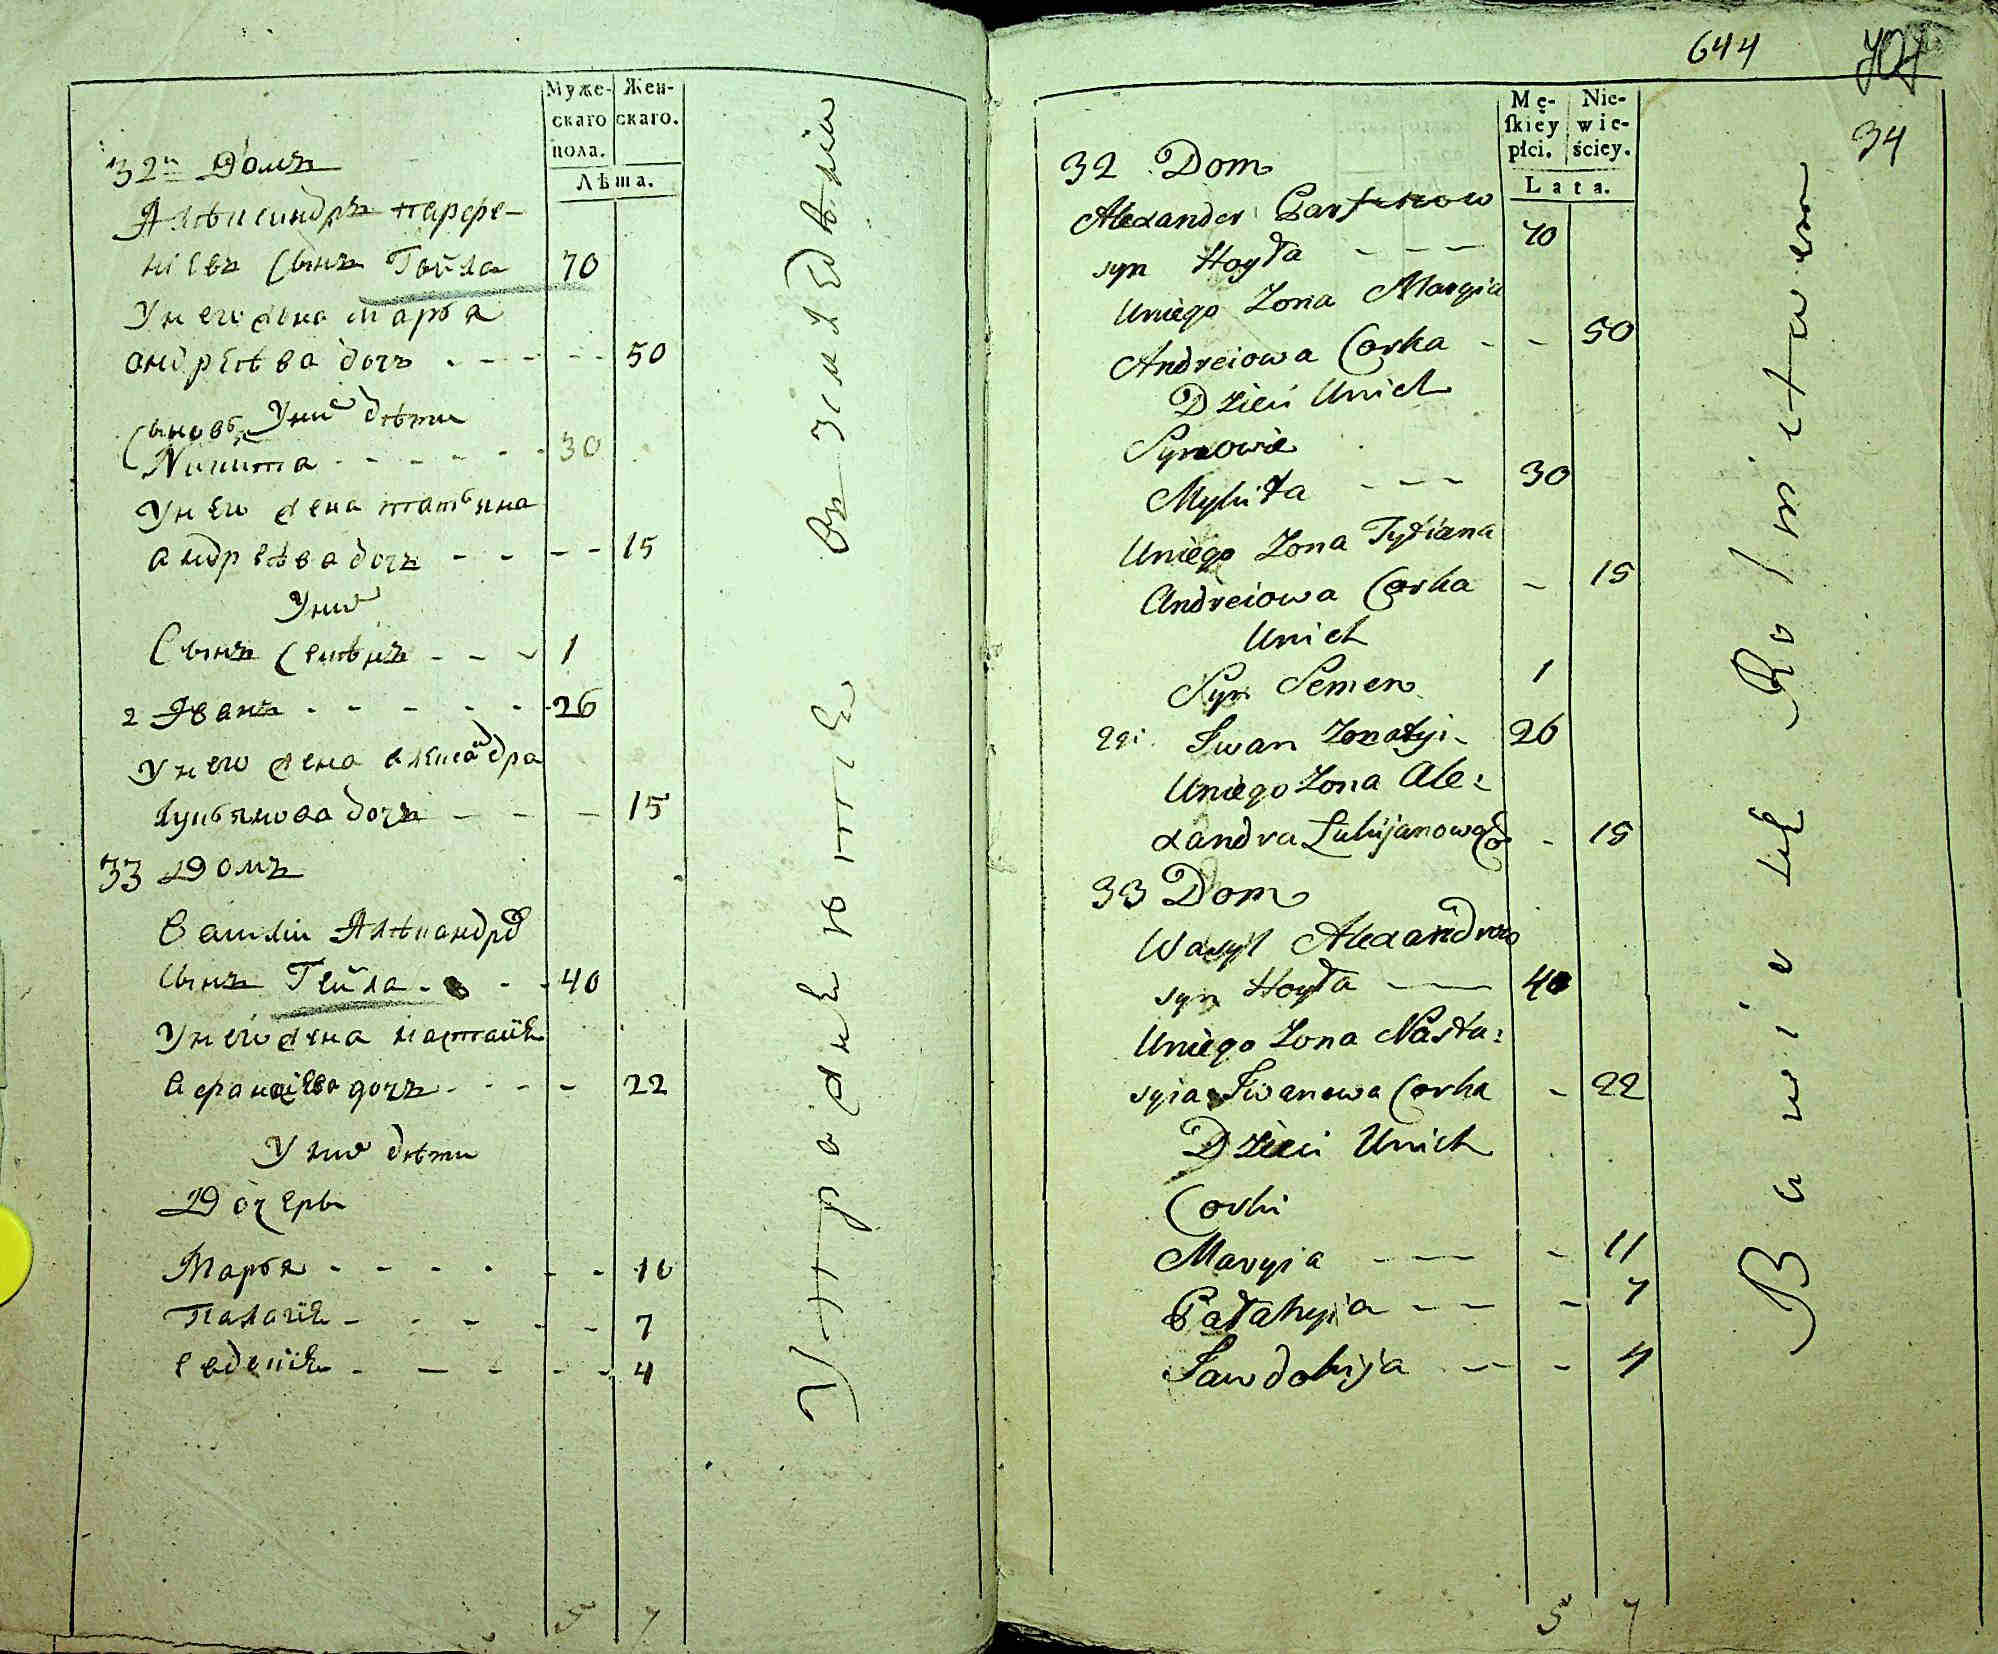 Муже-
скаго
пола.
Жен-
скаго.
Лѣта.
32й Домъ
Алѣксандръ парфе-
нiевъ Сынъ Гойла 70
Унего жена марья
андрѣѣва дочь - - - - - 50
Уних дѣти
Сыновья
Никита - - - - - - 30
Унего жена татьяна
андрѣѣва дочь - - - - 15
Уних
Сынъ Семѣнъ - - - 1
2 Иванъ - - - - - - 26
Унего жена александра
лукьянова дочь - - - 15
33 Домъ
василiи Алѣксандров
сынъ Гойла - - - 40
Унего жена настасiя
дочь - - - - 22
Уних дѣти
Дочери
Марья - - - - - - 10
Палагiя - - - - - 7
евдокiя - - - - - 4
Упражняются въ земледѣлiи
5 7
644
34
Mę-
ſkiey
płci.
Nie-
wie-
ściey.
Lata.
32 Dom
Alexander Parfenow
syn Hoyła - - - 70
Uniego Zona Maryia
Andreiowa Corka - - 50
Dzieci Unich
Synowie
Mykita - - - 30
Uniego Zona Tytiana
Andreiowa Corka - 15
Unich
Syn Semen 1
2gi Iwan Zonatyi - 26
Uniego Zona Ale:
xandra Łukijanowa Co - 15
33 Dom
Wasyl Alexandrow
syn Hoyła - 40
Uniego Zona Nasta:
syia Iwanowa Corka - 22
Dzieci Unich
Corki
Maryia - - - - 11
Pałahyia - - - 7
Jawdokija - - - 4
Bawie się Rolnictwem
5 7